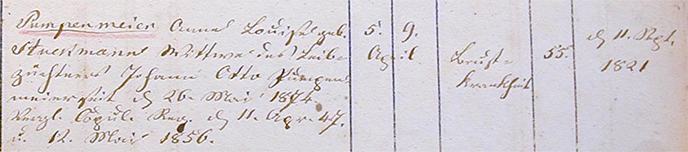 Pumpenmeier Anne Louise geb. 5. 9. d 11. Spt.
Stuckmann Wittwe des Leib- April Brust- 55. 1821
züchters Johann Otto Pumpen krankheit
meier seit d 26. Mai 1874
Vergl. Copul. Reg. d 11. Apr. 47.
u. 12. Mai 1856.